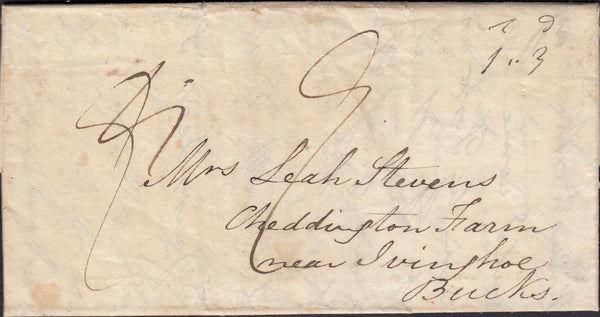 s d
1 .. 3
Mrs Leah Stevens
Cheddington Farm
near Ivinghoe
Bucks.